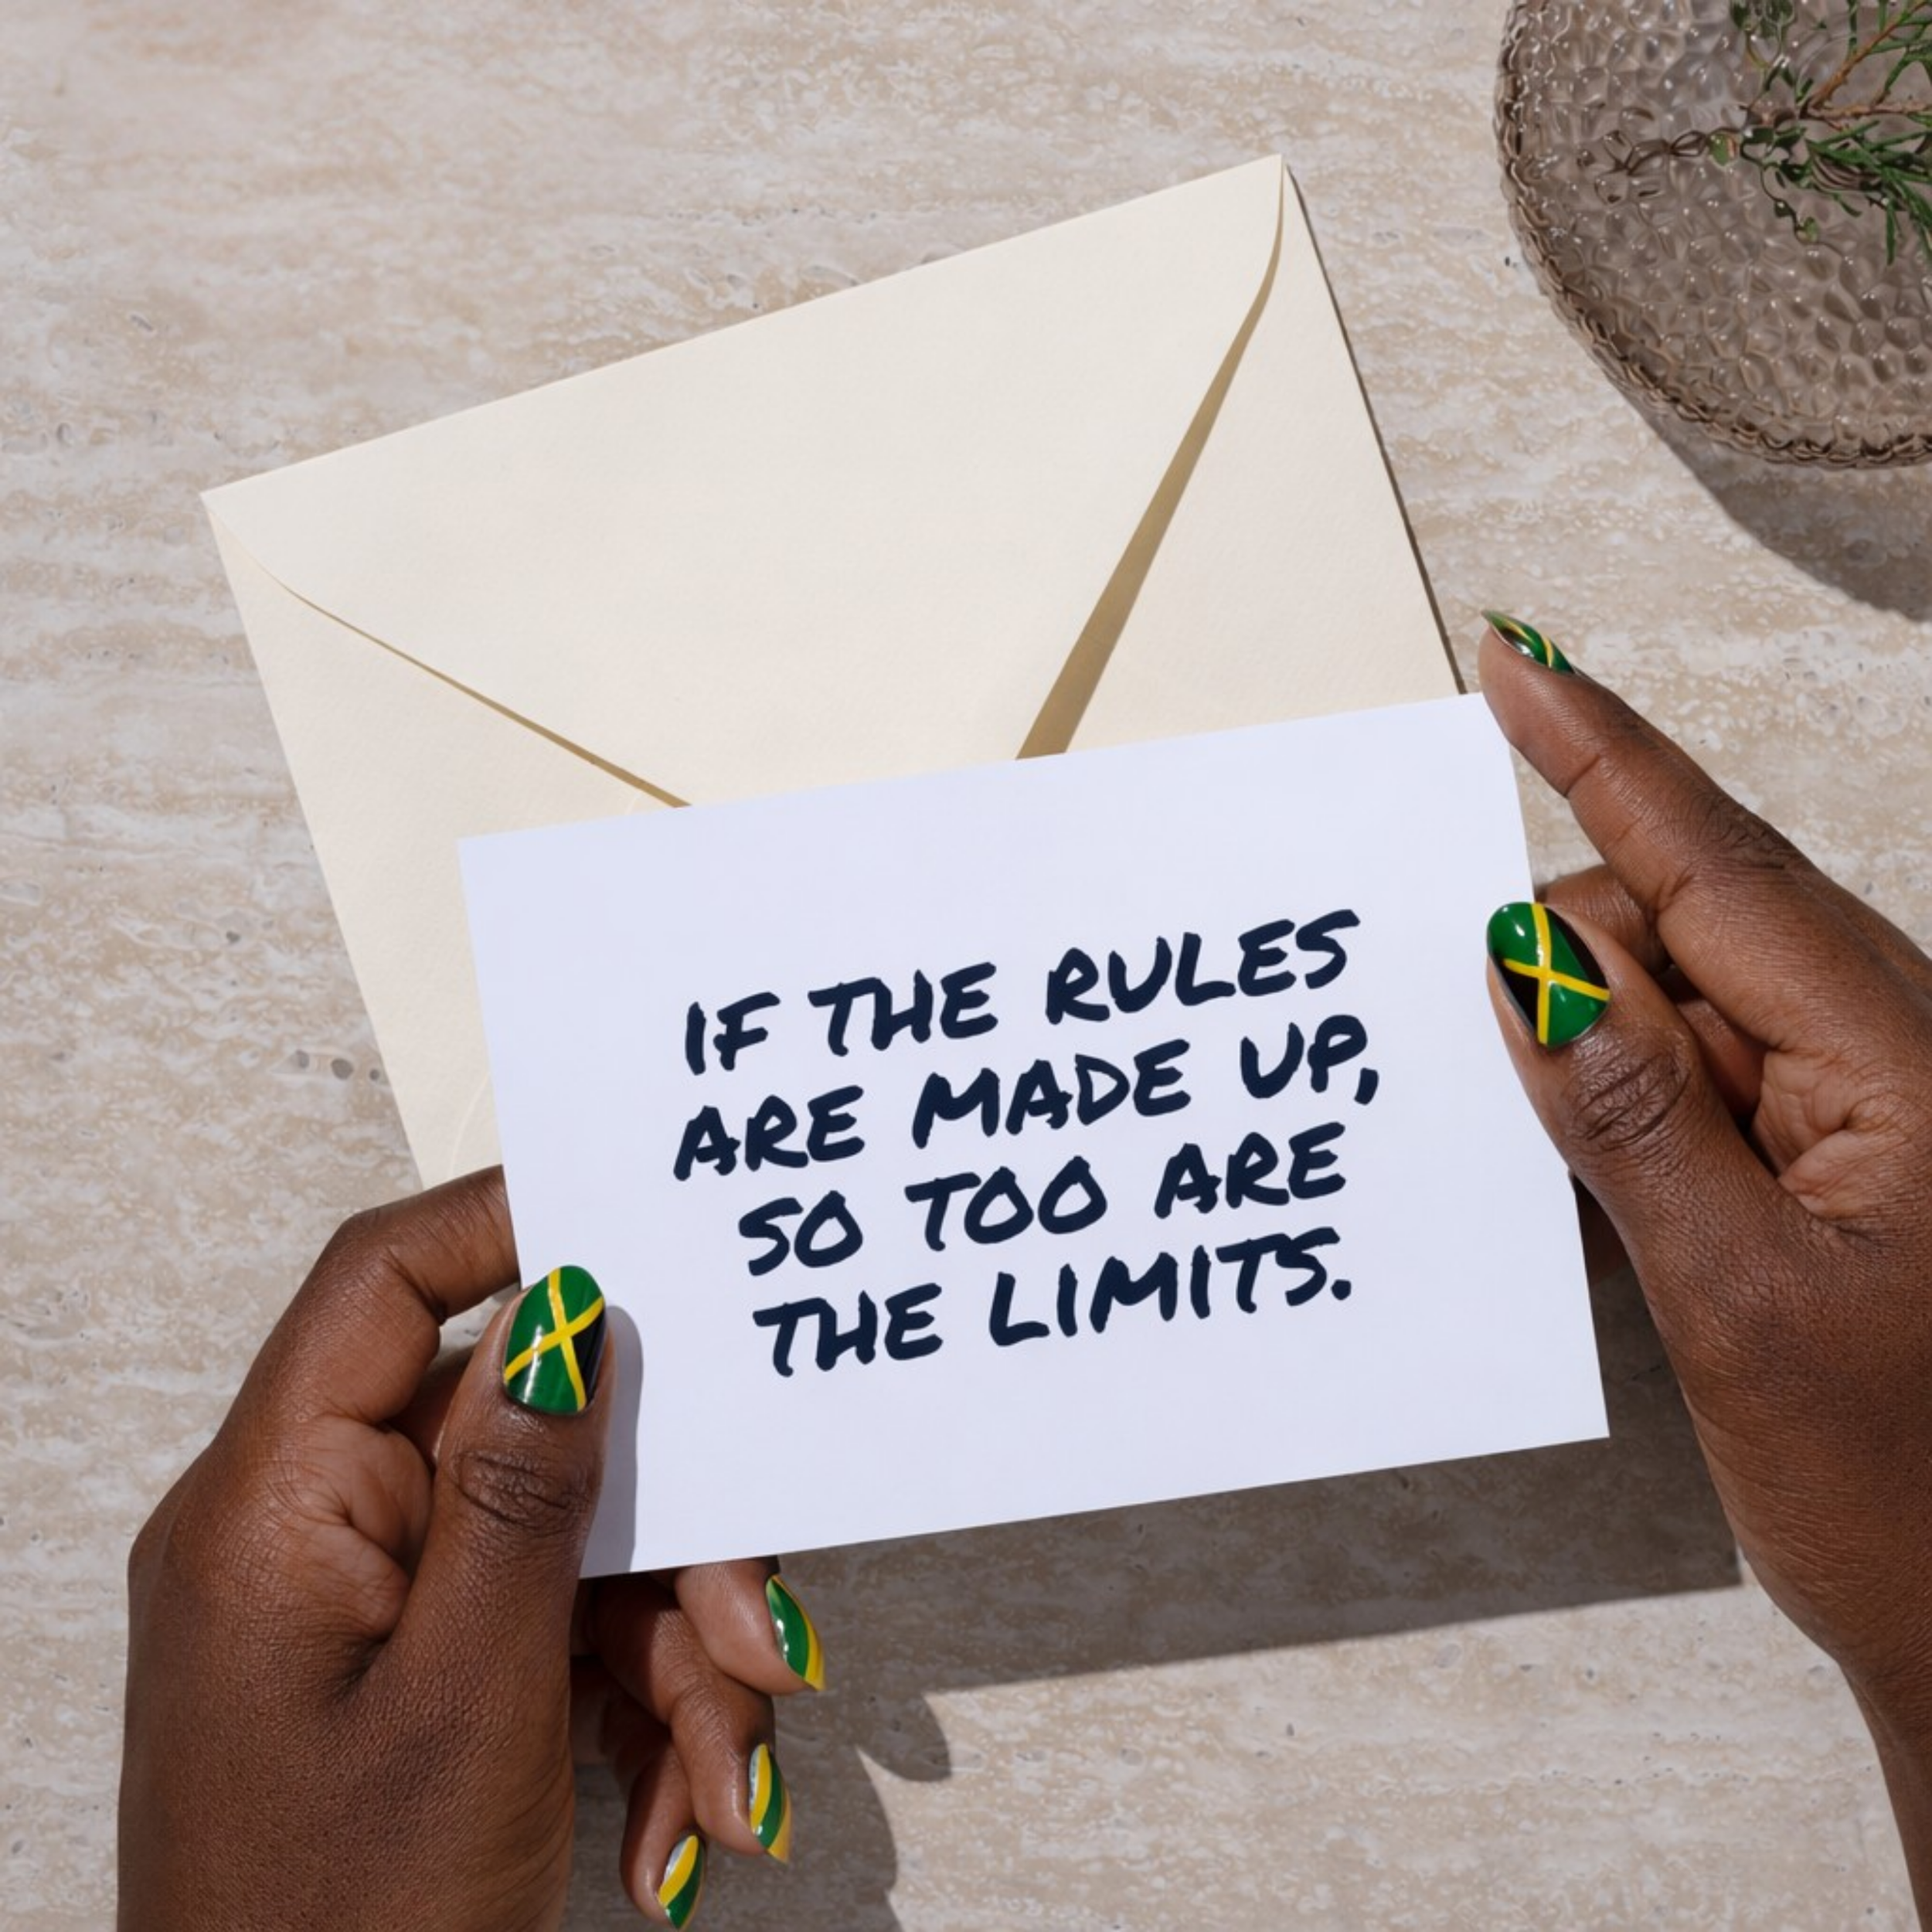 IF THE RULES
ARE MADE UP,
SO TOO ARE
THE LIMITS.